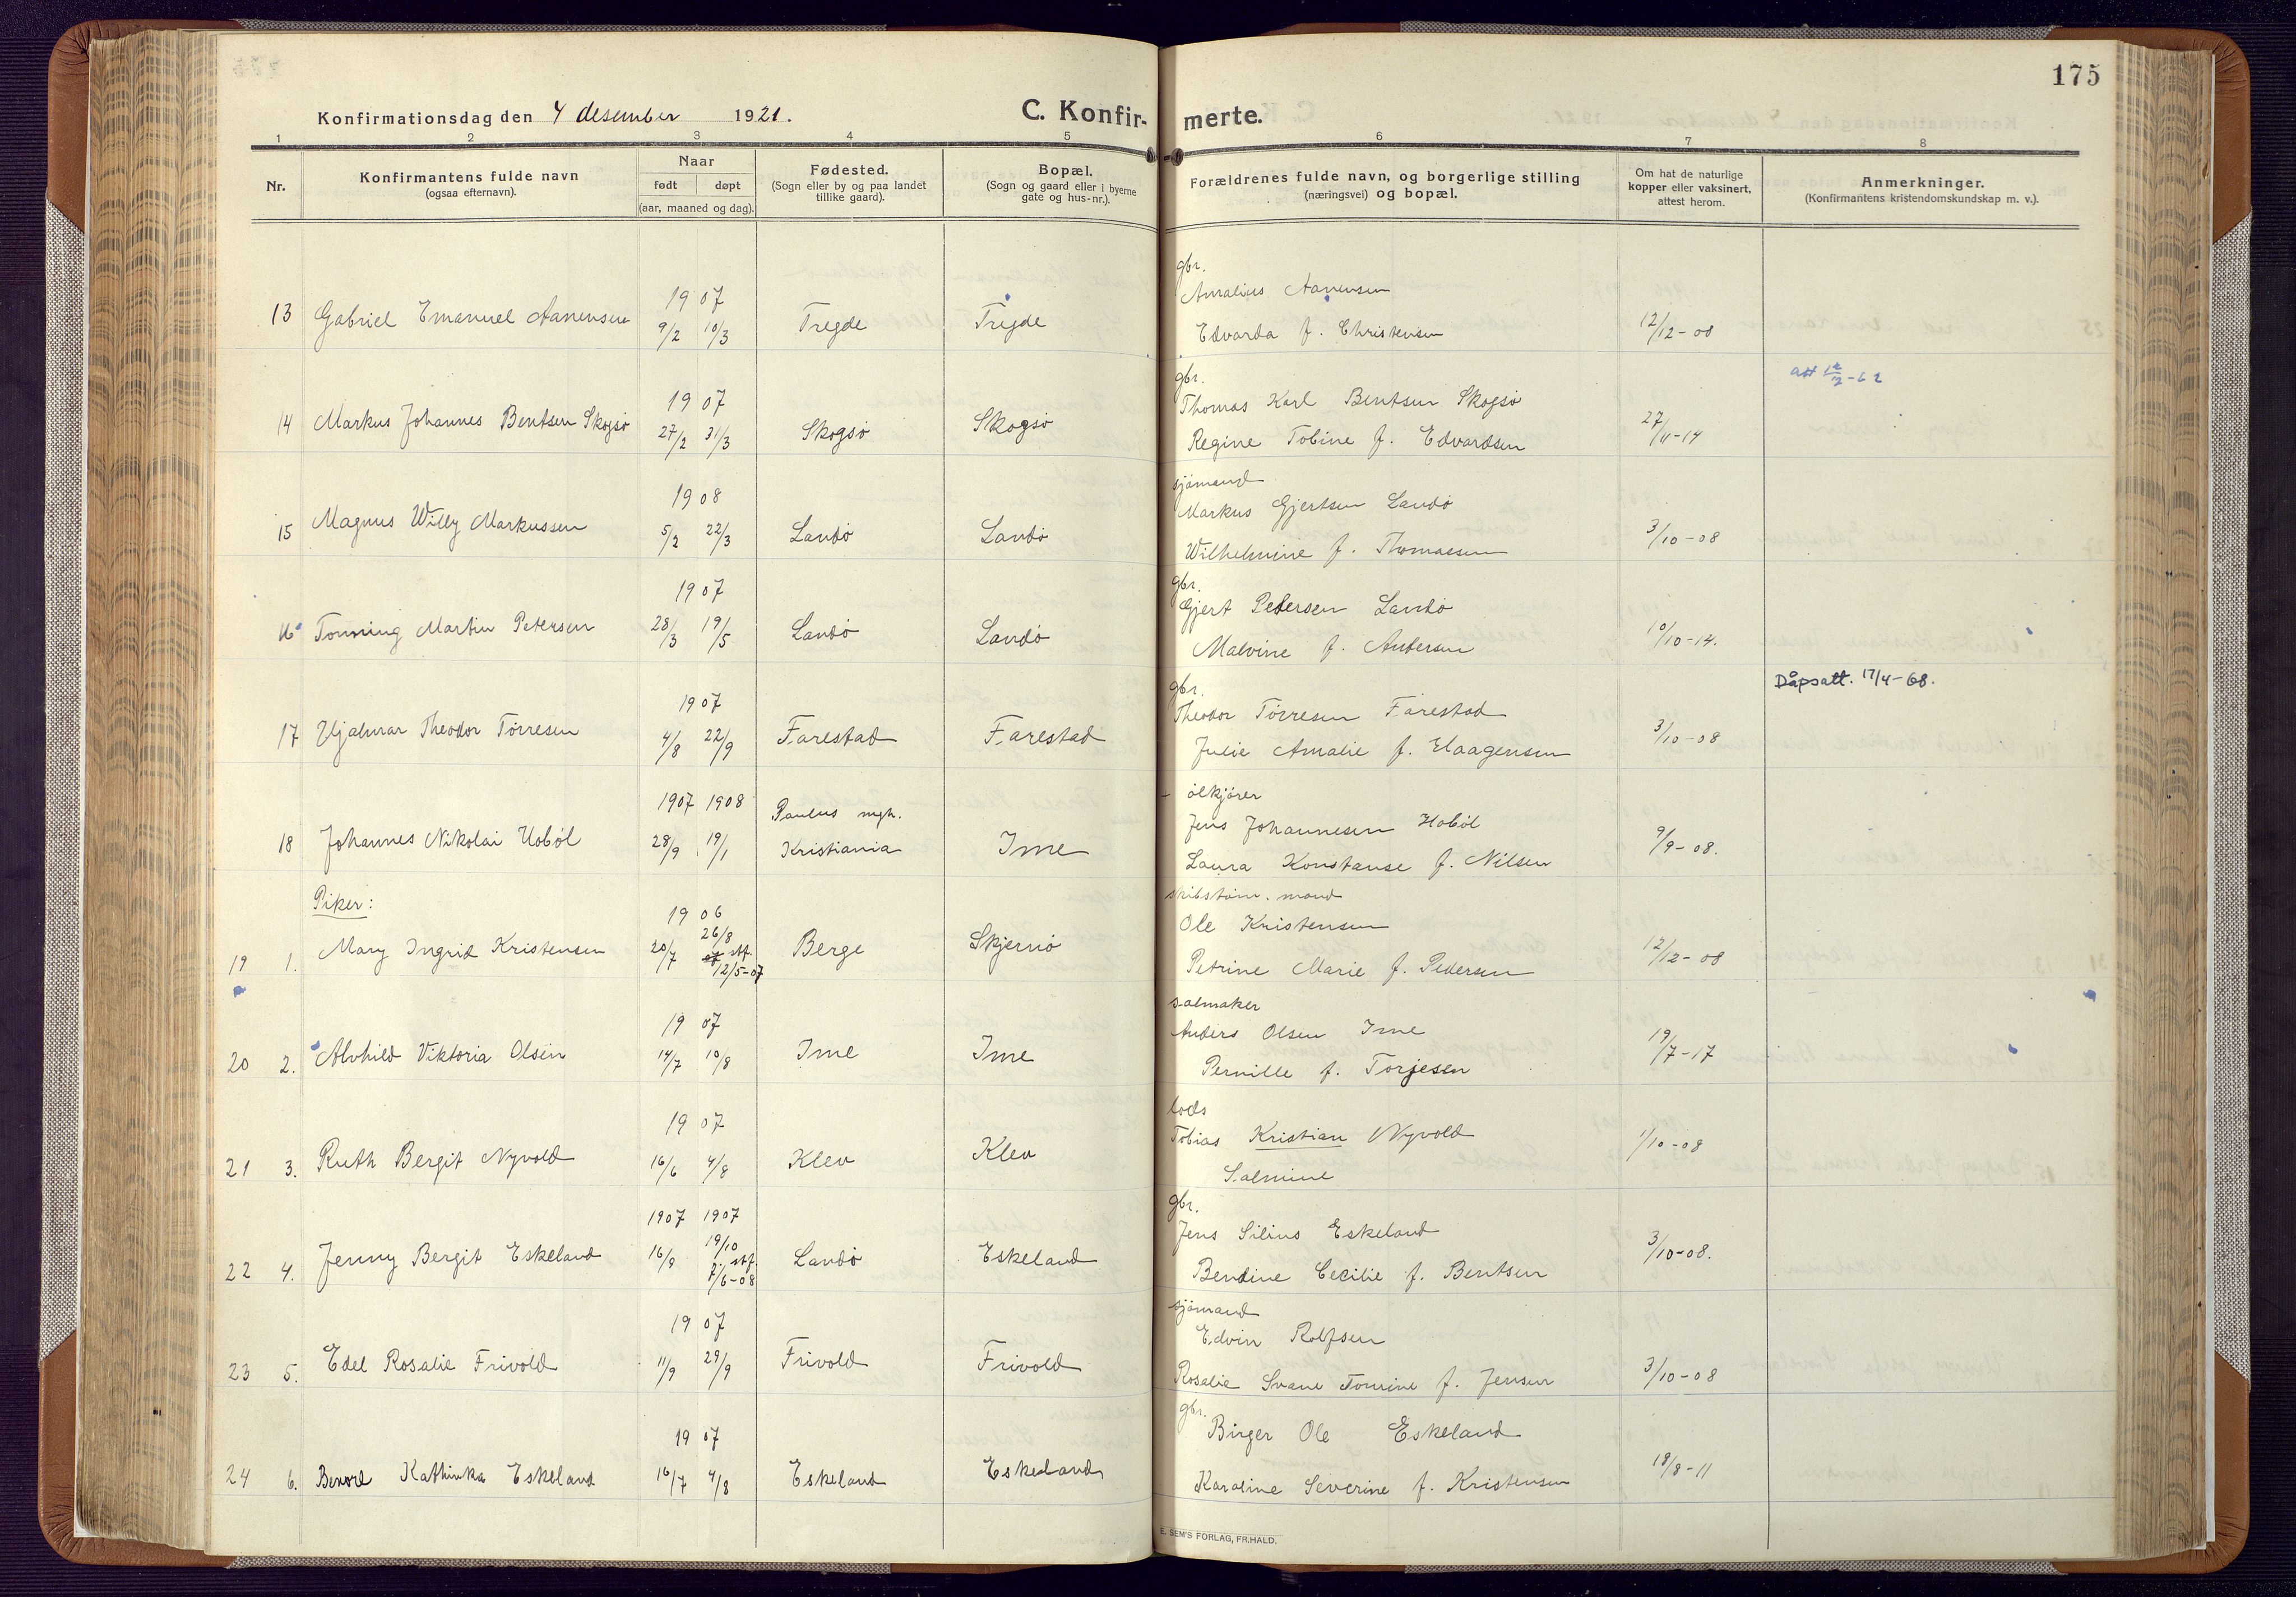 175
Konfirmationsdag den 4 desember 1921.
C. Konfir- merte.
1 2 3 4 5 6 7 8
Nr.
Konfirmantens fulde navn
(ogsaa efternavn).
Naar
født døpt
(aar, maaned og dag).
Fødested.
(Sogn eller by og paa landet
tillike gaard).
Bopæl.
(Sogn og gaard eller i byerne
gate og hus-nr.).
Forældrenes fulde navn, og borgerlige stilling
(næringsvei) og bopæl.
Om hat de naturlige
kopper eller vaksinert,
attest herom.
Anmerkninger.
(Konfirmantens kristendomskundskap m. v.).
gbr.
1907 Amalius Aanensen
13 Gabriel Emanuel Aanensen 9/2 10/3 Tregde Tregde Edvarda f. Christensen 12/12-08
gbr.
1907 Thomas Karl Bentsen Skogsø
14 Markus Johannes Bentsen Skogsø 27/2 31/3 Skogsø Skogsø Regine Tobine f. Edvardsen
sjømand
1908 Markus Gjertsen Landø
15 Magnus Willy Markussen 5/2 22/3 Landø Landø Wilhelmine f. Thomassen 3/10-08
gbr.
1907 Gjert Pedersen Landø
16 Tonning Martin Petersen 28/3 19/5 Landø Landø Malvine f. Andersen 10/10-14.
Dåpsatt. 17/4-68.
gbr.
1907 Theodor Tørresen Farestad
17 Hjalmar Theodor Tørresen 4/8 22/9 Farestad Farestad Julie Amalie f. Haagensen 3/10-08
ølkjører
1907 1908 Paulus mgh. Jens Johannesen Hobøl
18 Johannes Nikolai Hobøl 28/9 19/1 Kristiania Ime Laura Konstanse f. Nilsen 9/9-08.
Piker:
1906 Ole Kristensen
26/8
19 1. Mary Ingrid Kristensen 20/7 stf. Berge Skjernø Petrine Marie f. Pedersen 12/12-08
12/5-07
salmaker
1907 Anders Olsen Ime
20 2. Alvhild Viktoria Olsen 14/7 10/8 Ime Ime Pernille f. Torjesen 19/7-17
lods
1907 Tobias Kristian Nyvold
21 3. Ruth Bergit Nyvold 16/6 4/8 Klev Klev Salmine 1/10-08
gbr.
1907 1907 Jens Silius Eskeland
19/10
22 4. Jenny Bergit Eskeland 16/9 stf. Landø Eskeland Bendine Cecilie f. Bentsen 3/10-08.
7/6-08
sjømand
1907 Edvin Rolfsen
23 5. Edel Rosalie Frivold 11/9 29/9 Frivold Frivold Rosalie Svane Tomine f. Jensen 3/10-08
gbr.
1907 Birger Ole Eskeland
24 6. Kathinka Eskeland 16/7 4/8 Eskeland Eskeland Karoline Severine f. Kristensen 18/8-11
E. SEM'S FORLAG, FR.HALD.